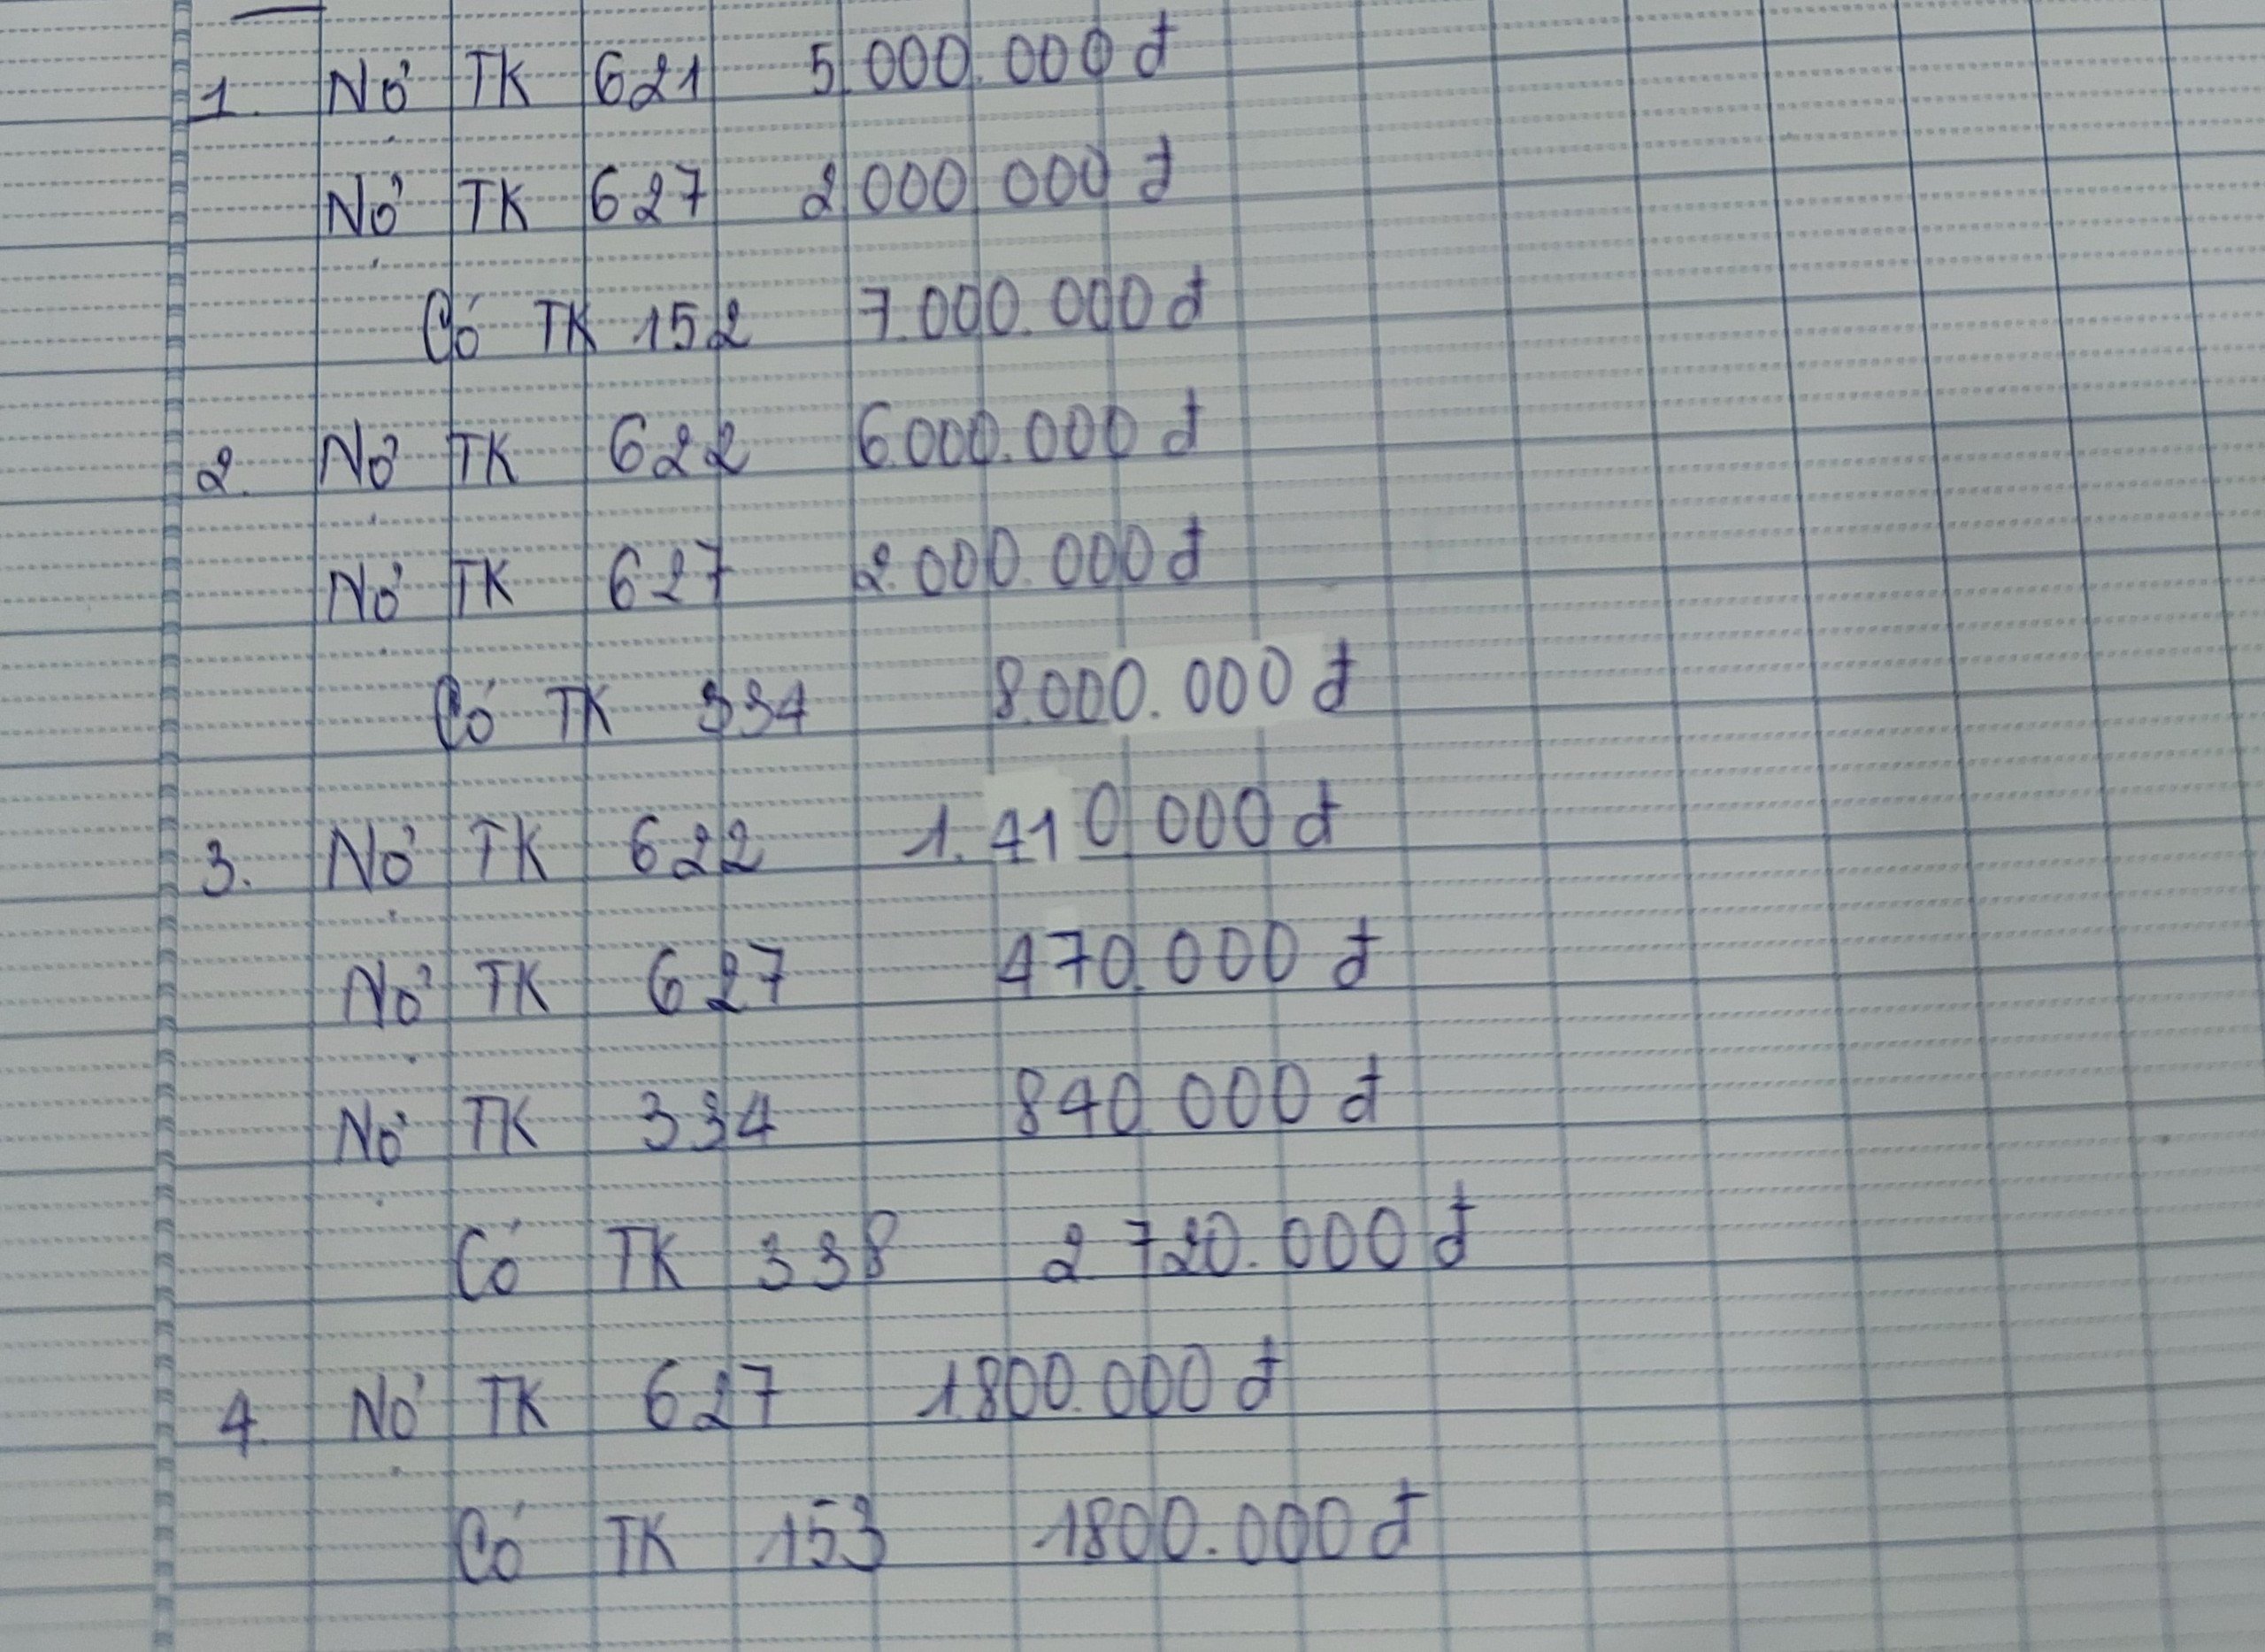 1. Nợ TK 621 5.000.000đ
Nợ TK 627 2 000 000đ
Có TK 152 7.000.000đ
2. Nợ TK 622 6.000.000đ
Nợ TK 627 2.000.000đ
Có TK 334 8.000.000đ
3. Nợ TK 622 1.410 000đ
Nợ TK 627 470.000đ
Nợ TK 334 840.000đ
Có TK 338 2 720.000đ
4. Nợ TK 627 1.800.000đ
Có TK 153 1800.000đ